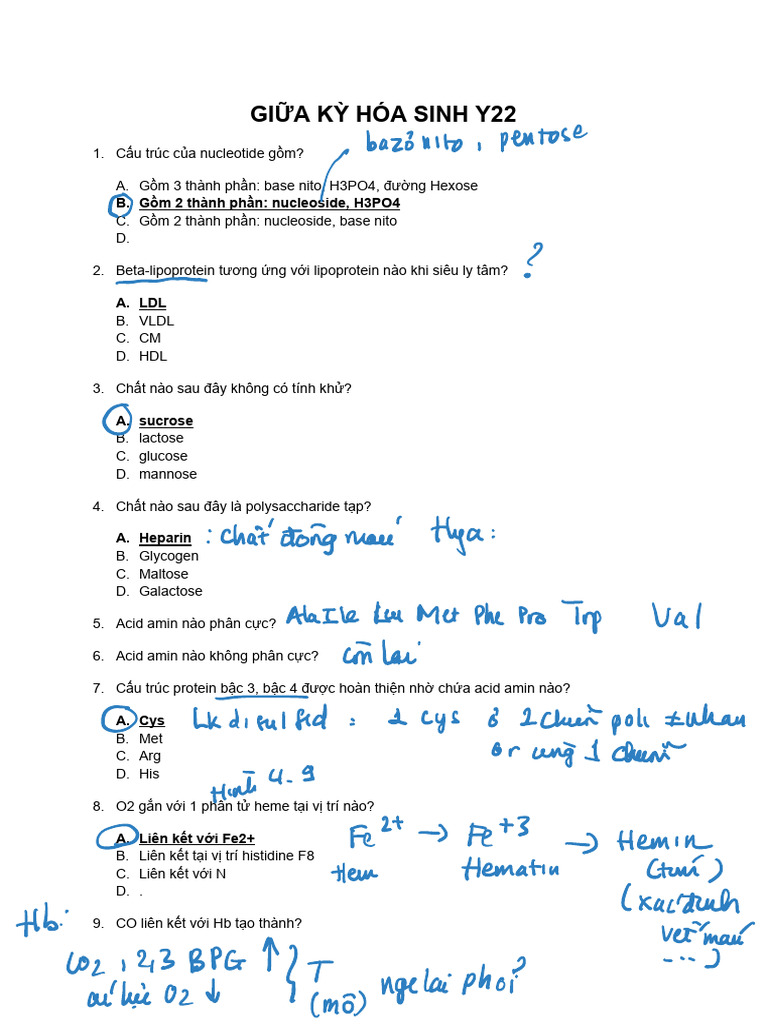 GIỮA KỲ HÓA SINH Y22
bazơ nitơ, pentose
1. Cấu trúc của nucleotide gồm?
A. Gồm 3 thành phần: base nito, H3PO4, đường Hexose
B. Gồm 2 thành phần: nucleoside, H3PO4
C. Gồm 2 thành phần: nucleoside, base nito
D.
2. Beta-lipoprotein tương ứng với lipoprotein nào khi siêu ly tâm? ?
A. LDL
B. VLDL
C. CM
D. HDL
3. Chất nào sau đây không có tính khử?
A. sucrose
B. lactose
C. glucose
D. mannose
4. Chất nào sau đây là polysaccharide tạp?
A. Heparin : chất đông máu Hya:
B. Glycogen
C. Maltose
D. Galactose
5. Acid amin nào phân cực? Ala Ile Leu Met Phe Pro Trp Val
6. Acid amin nào không phân cực? còn lại
7. Cấu trúc protein bậc 3, bậc 4 được hoàn thiện nhờ chứa acid amin nào?
A. Cys Lk disulfid = 2 cys ở 2 chuỗi poli ≠ nhau
B. Met or cùng 1 chuỗi
C. Arg
D. His
Hình 4.9
8. O2 gắn với 1 phân tử heme tại vị trí nào?
A. Liên kết với Fe2+ Fe2+ → Fe+3 → Hemin
B. Liên kết tại vị trí histidine F8
C. Liên kết với N Hem Hematin
D. .
(xác định
vết máu
...)
9. CO liên kết với Hb tạo thành?
Hb:
CO2, 2,3 BPG ↑
ái lực O2 ↓
T
(mô)
ngc lại phổi